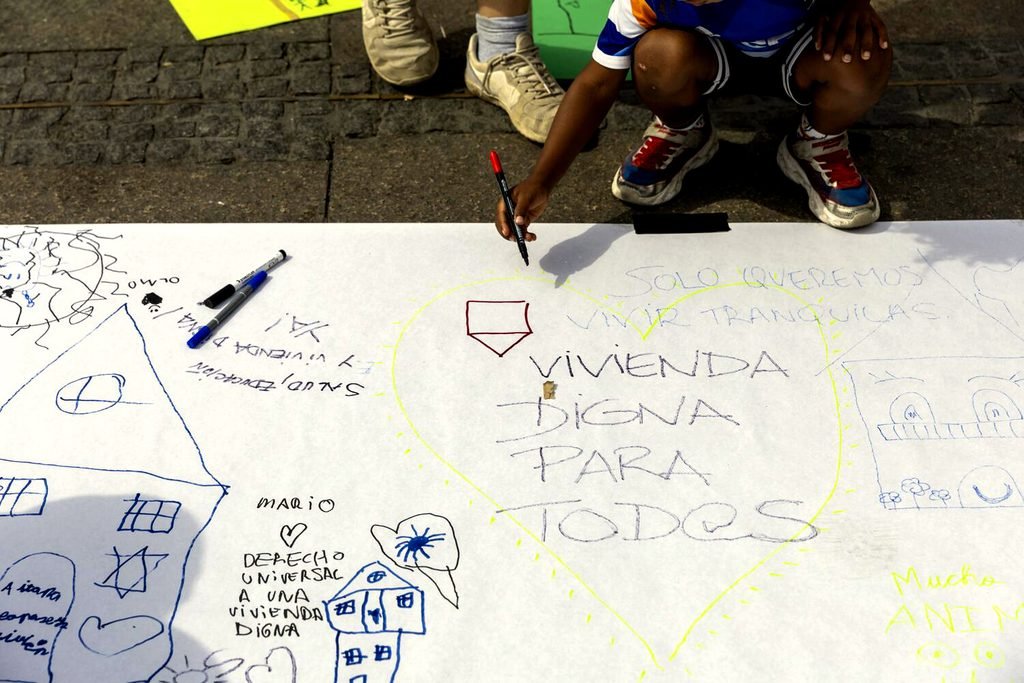 OLMO
SALUD, EDUCACIÓN
Y VIVIENDA DIGNA
YA!
SOLO QUEREMOS
VIVIR TRANQUILAS.
VIVIENDA
DIGNA
PARA
TOD@S
MARIO
DERECHO
UNIVERSAL
A UNA
VIVIENDA
DIGNA
Mucho
ANIM